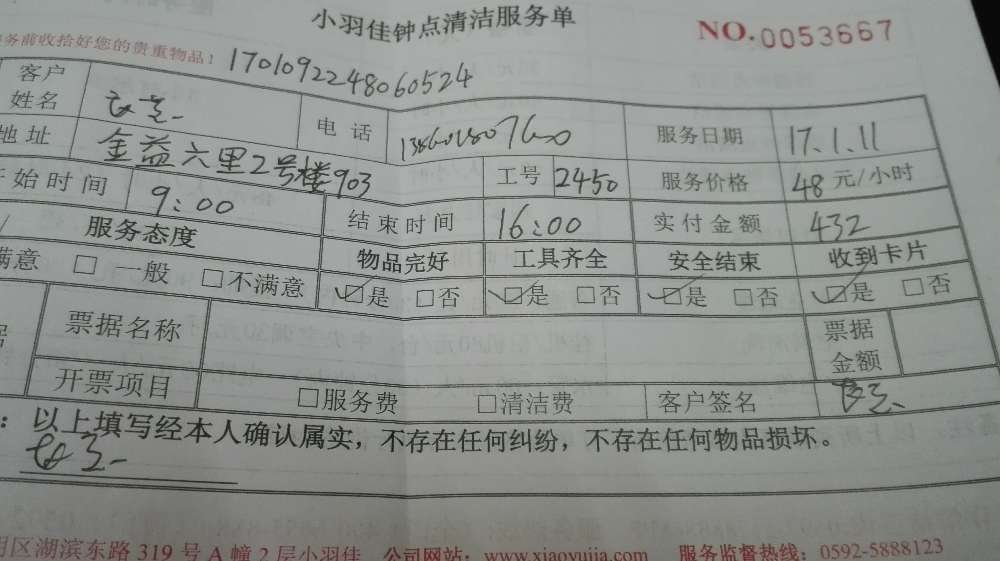 小羽佳钟点清洁服务单
NO.0053667
务前收拾好您的贵重物品! 170109224806052​4
客户姓名 电话 服务日期 17.1.11
地址 金益六里2号楼903 工号 2450 服务价格 48 元/小时
开始时间 9:00 结束时间 16:00 实付金额 432
服务态度 物品完好 工具齐全 安全结束 收到卡片
满意 □ 一般 □不满意 ☑是 □否 ☑是 □否 ☑是 □否 ☑是 □否
票据名称 票据金额
开票项目 □服务费 □清洁费 客户签名
：以上填写经本人确认属实，不存在任何纠纷，不存在任何物品损坏。
明区湖滨东路 319 号 A 幢 2 层小羽佳 公司网站：www.xiaoyujia.com 服务监督热线：0592-5888123